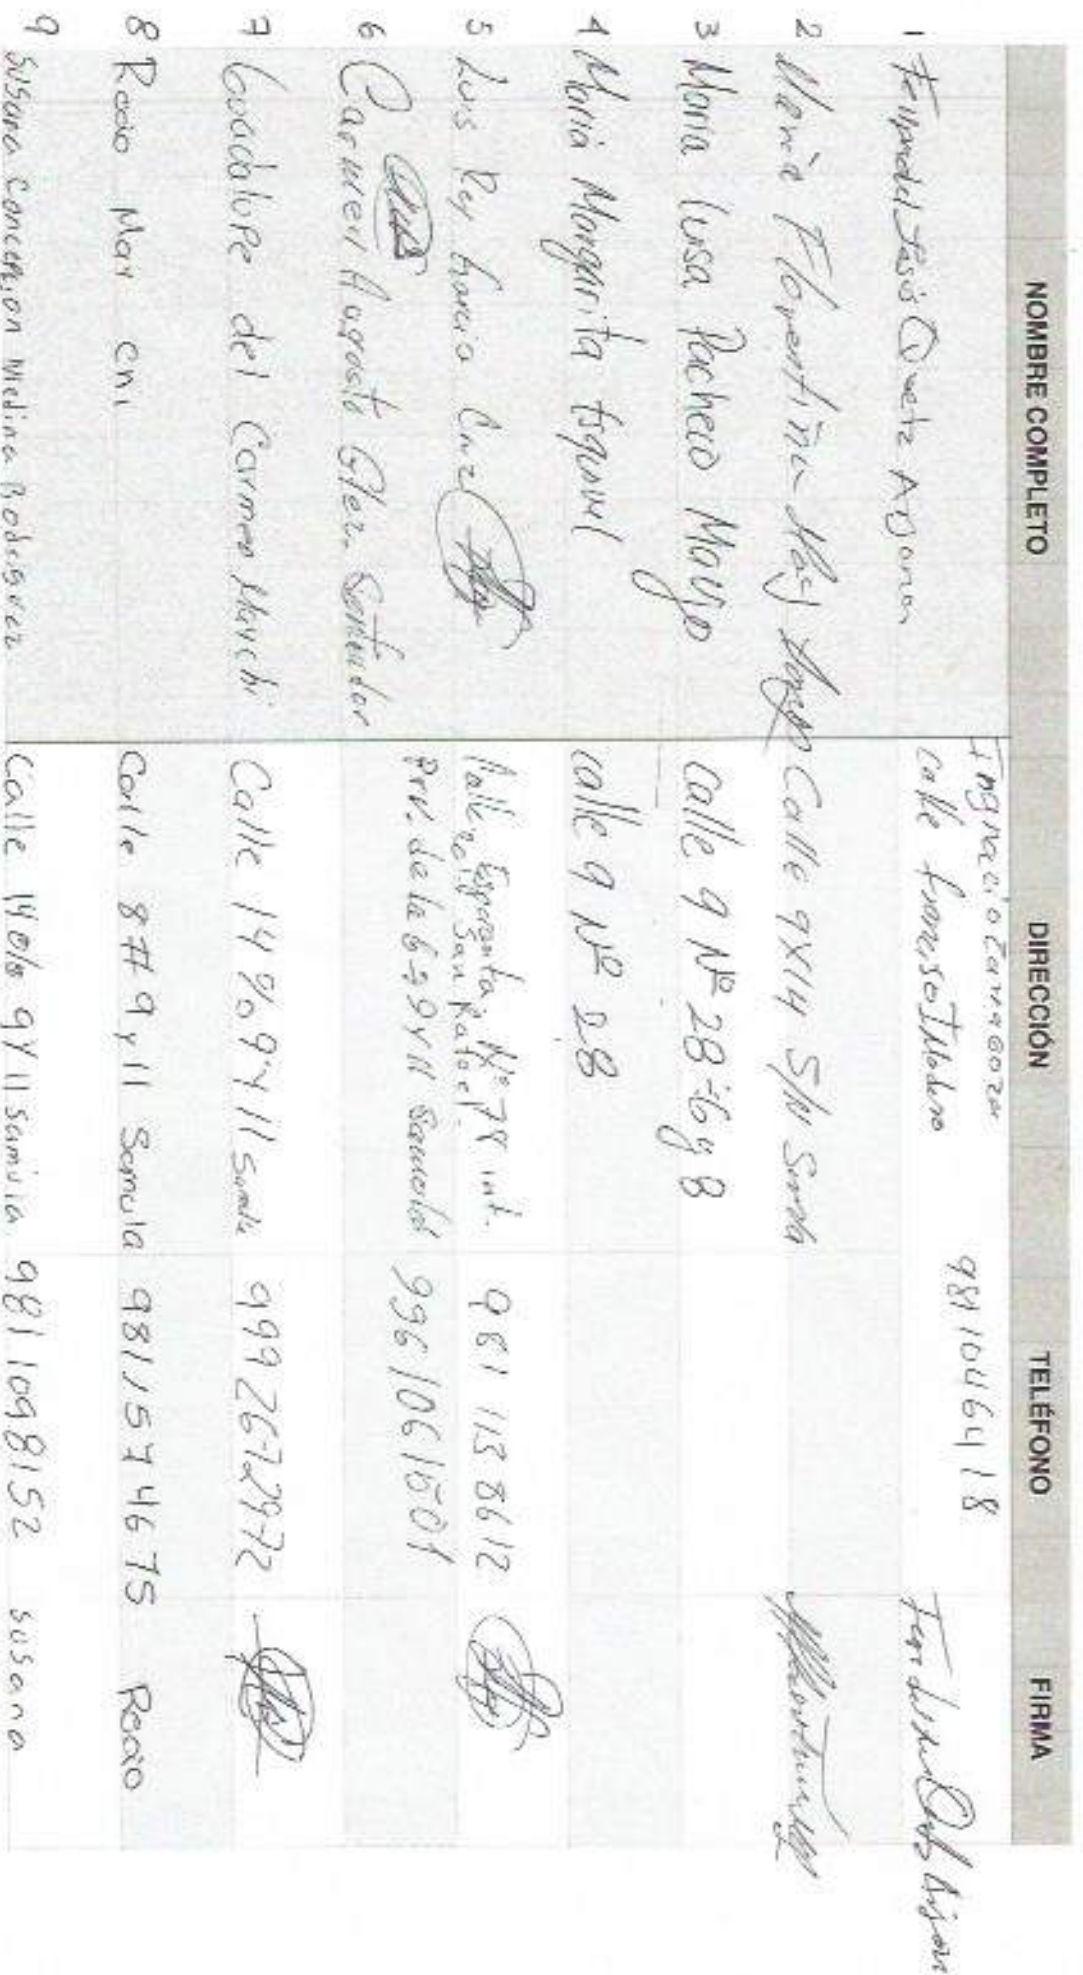 NOMBRE COMPLETO DIRECCIÓN TELÉFONO FIRMA
1 Quetz Ignacio Zaragoza
calle 9811046418
2 María Florentina May Calle 9x14 S/N
3 Maria Luisa Pacheco Calle 9 Nº 28 6 y 8
4 María Margarita Esquivel calle 9 Nº 28
5 Luis Rey García Cruz Calle Esperanza Nº 78 int.
San Rafael 981 113 8612
6 Augusto Glez. Prv. de la 6 9 y 11 9961061501
7 Guadalupe del Carmen May chi Calle 14 % 9 y 11 Samula 9992672972
8 Rocio May chi Calle 8 # 9 y 11 Samula 9811574675 Rocio
9 Susana Concepcion Medina Rodriguez Calle 14 9 y 11 Samula 9811098152 Susana